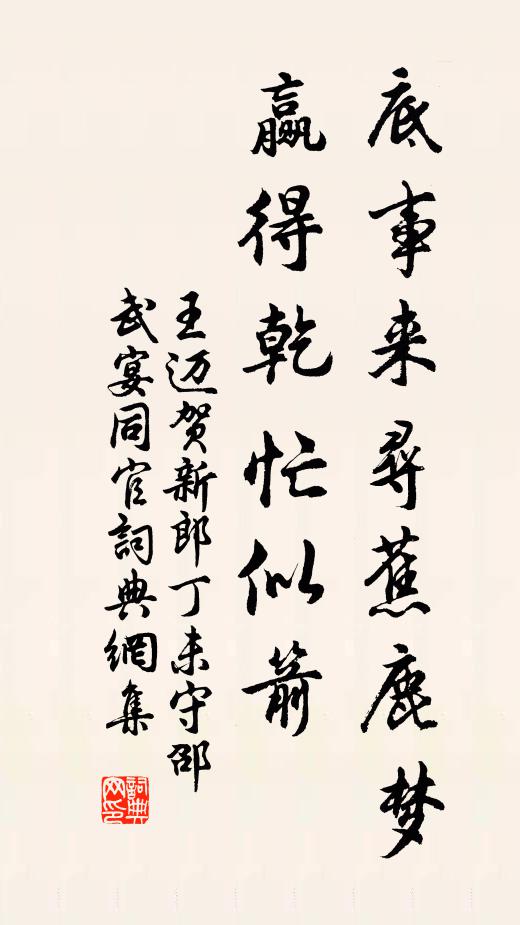 底事来尋蕉鹿梦
贏得乾忙似箭
王迈贺新郎丁未守邵
武宴同官詞典網集
詞典
网印